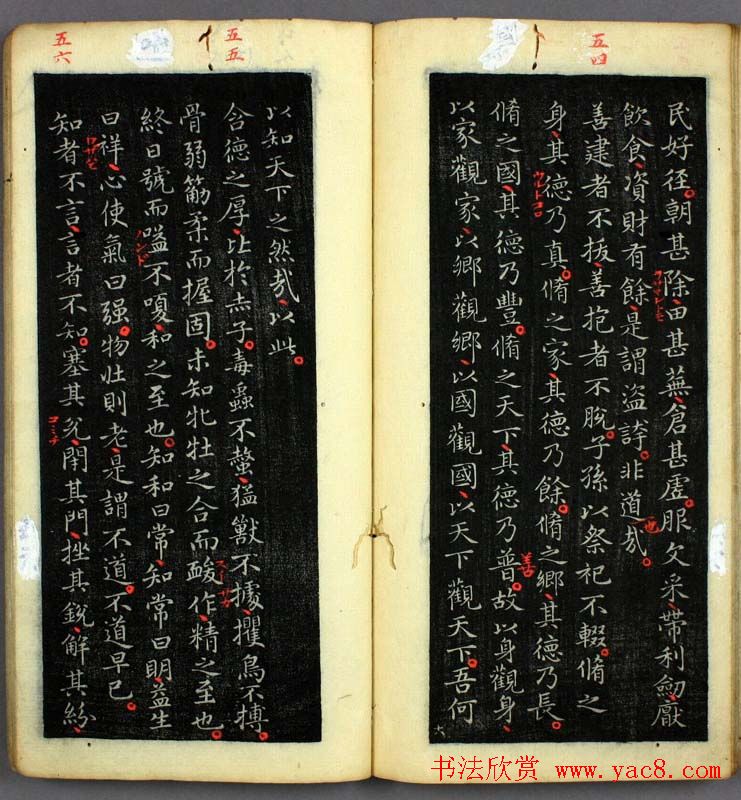 五四
民好徑朝甚除田甚蕪倉甚虛服文采帶利劍厭
飲食資財有餘是謂盜誇非道哉
也
善建者不拔善抱者不脫子孫以祭祀不輟脩之
身其德乃真脩之家其德乃餘脩之鄉其德乃長
脩之國其德乃豐脩之天下其德乃普故以身觀身
以家觀家以鄉觀鄉以國觀國以天下觀天下吾何
五五
以知天下之然哉以此
含德之厚比於赤子毒蟲不螫猛獸不據攫鳥不搏
骨弱筋柔而握固未知牝牡之合而酸作精之至也
終日號而嗌不嗄和之至也知和曰常知常曰明益生
ノンド
曰祥心使氣曰强物壯則老是謂不道不道早已
五六
知者不言言者不知塞其兌閉其門挫其銳解其紛
书法欣赏 www.yac8.com